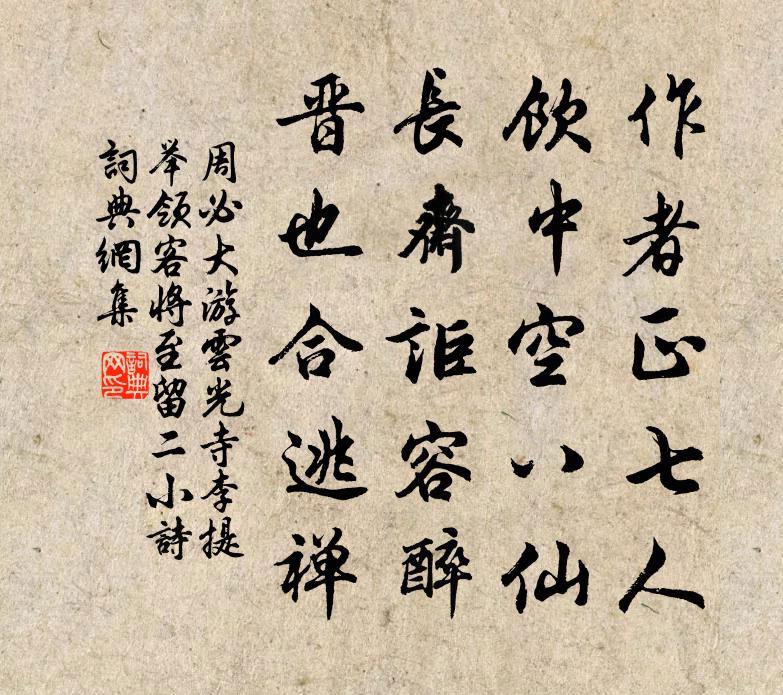 作者正七人
飲中空八仙
長齋詎容醉
晋也合逃禅
周必大游雲光寺李提
举領客將至留二小詩
詞典網集
詞典
网印